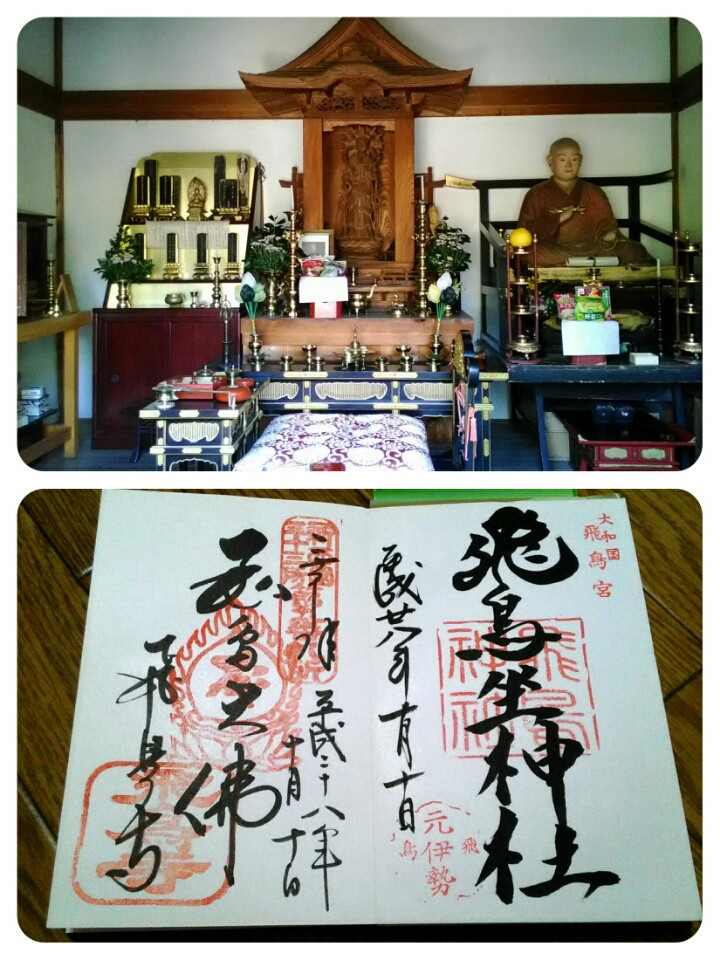 大和国
飛鳥宮
飛鳥坐神社
飛鳥
神社
元伊勢
飛鳥
平成廿八年十月十日
奉拝
平成二十八年
十月十日
飛鳥大佛
飛鳥寺